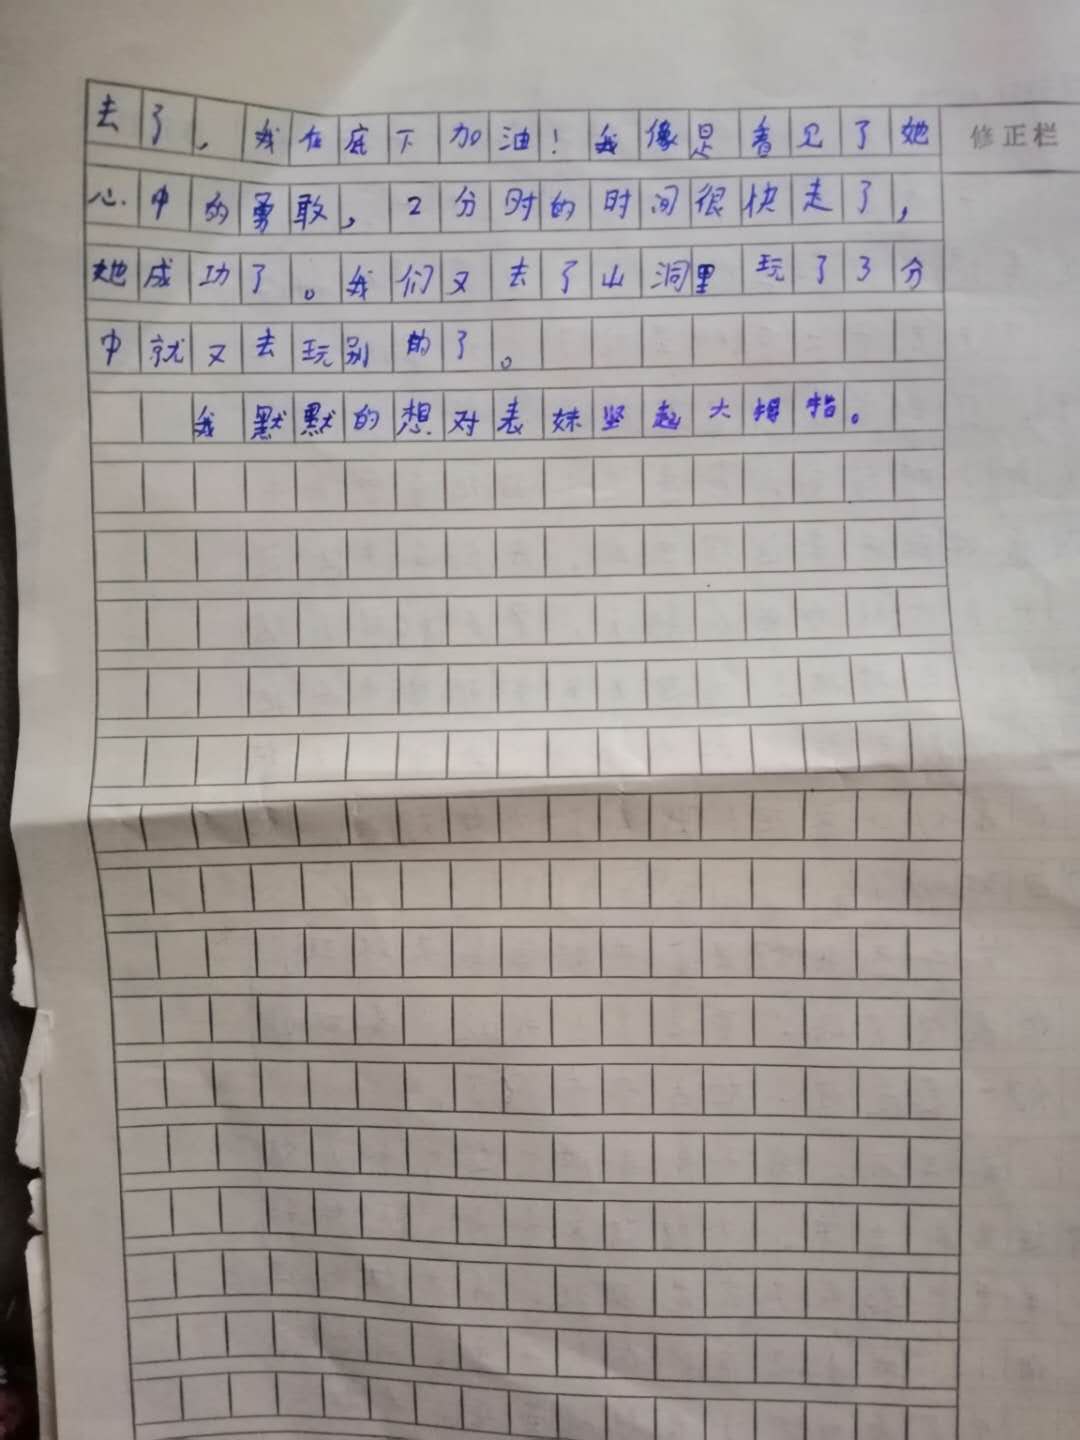 去了，我在底下加油！我像是看见了她
修正栏
心中的勇敢，2分时的时间很快走了，
她成功了。我们又去了山洞里玩了3分
中就又去玩别的了。
我默默的想对表妹坚起大拇指。